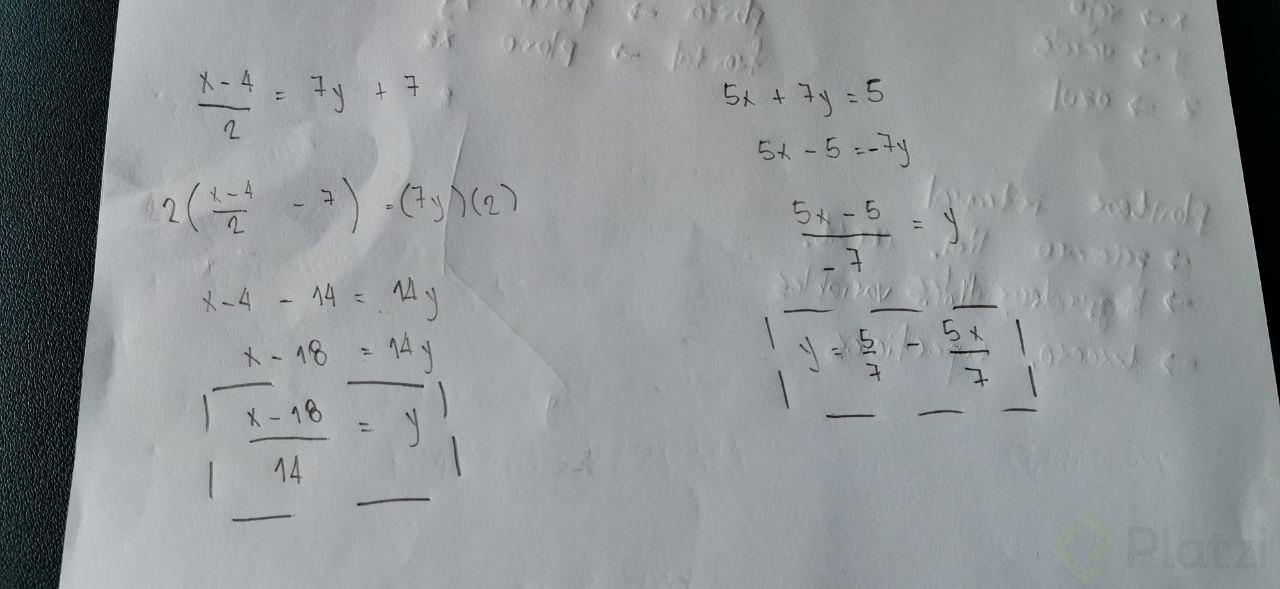 x - 4 / 2 = 7y + 7
2(x - 4 / 2 - 7) = (7y)(2)
x - 4 - 14 = 14y
x - 18 = 14y
x - 18 / 14 = y
5x + 7y = 5
5x - 5 = -7y
5x - 5 / -7 = y
y = 5/7 - 5x/7
Platzi